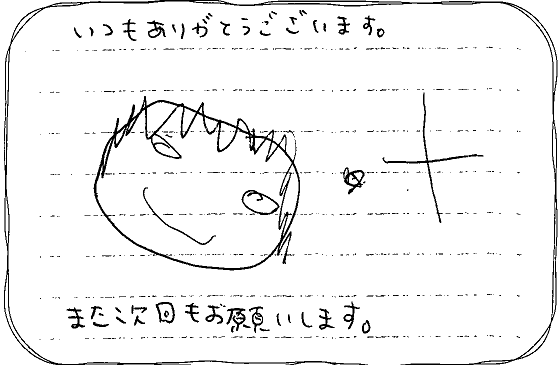 いつもありがとうございます。
また次回もお願いします。